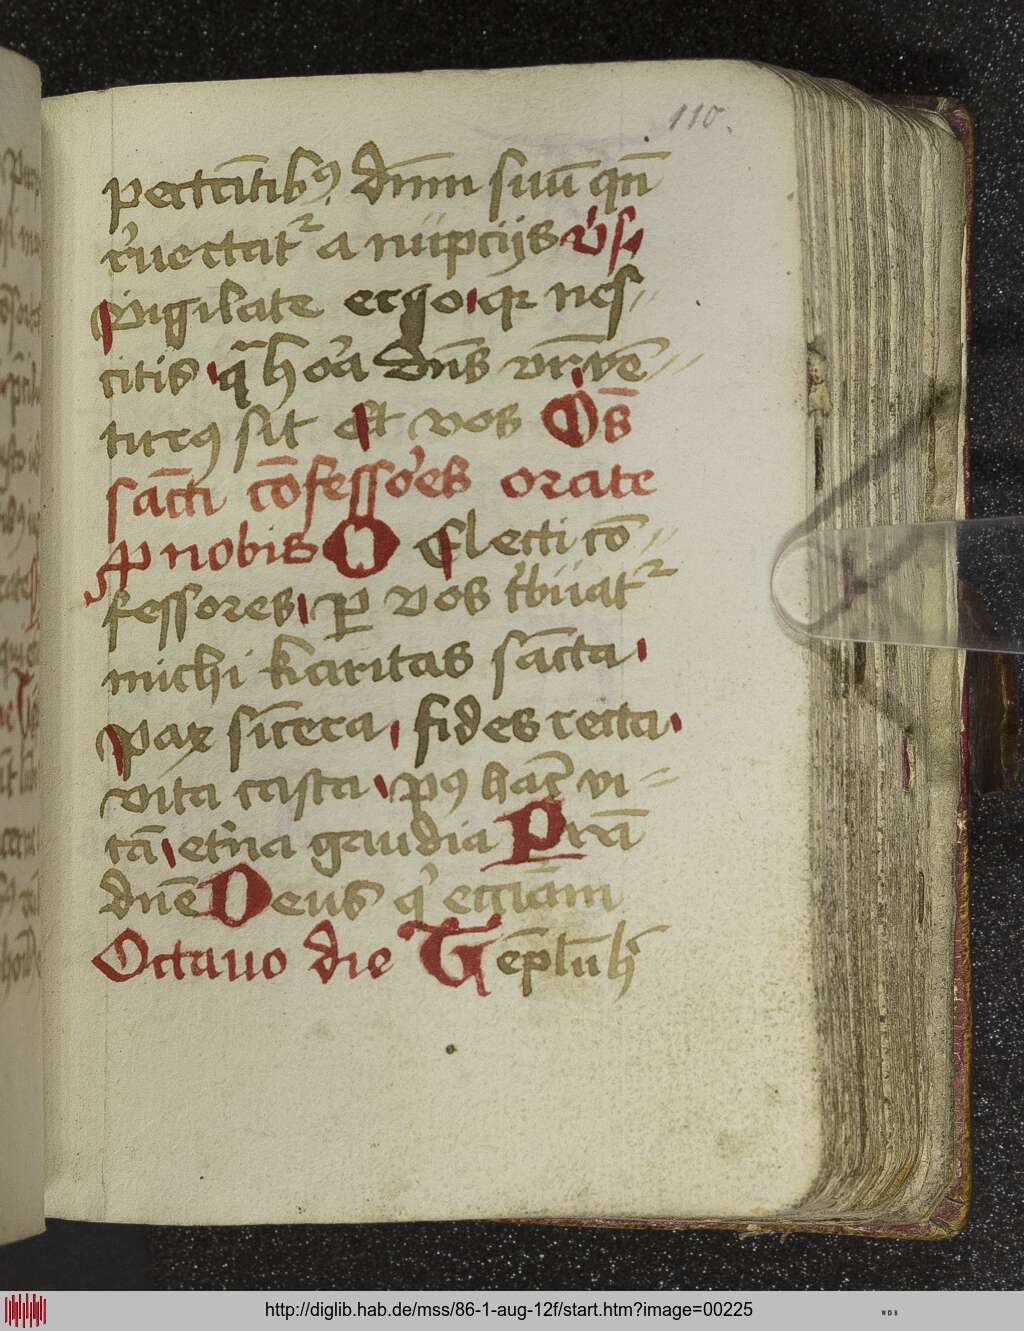 110.
pectātibꝰ dn̄m suū qn̄
r̉uertatᷣ a nüpcijs v̉sꝭ
Uigilate ergo qꝛ nes⸗
citis qᷓ hora dn̄s vr̄ vē⸗
turꝰ sit Et vos Om̄s
sācti cōfessores orate
ꝓ nobis O Electi cō⸗
fessores ꝑ vos tͥbüatᷣ
michi karitas sācta
pax sīcera fides recta
vita casta pꝰ hāc vi⸗
tā et̉na gaudia P̲rā
dn̄e Deus qͥ ecciām
Octauo die
http://diglib.hab.de/mss/86-1-aug-12f/start.htm?image=00225